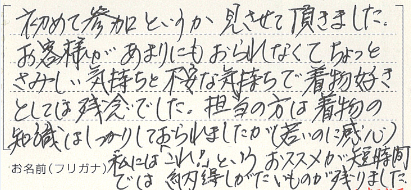 初めて参加というか見させて頂きました。
お客様があまりにもおられなくてちょっと
さみしい気持ちと不安な気持ちで着物好き
としては残念でした。担当の方は着物の
知識はしっかりしておられましたが(若いのに感心)
お名前(フリガナ) 私には"これ!"というおススメが短時間
では納得しがたいものが残りました